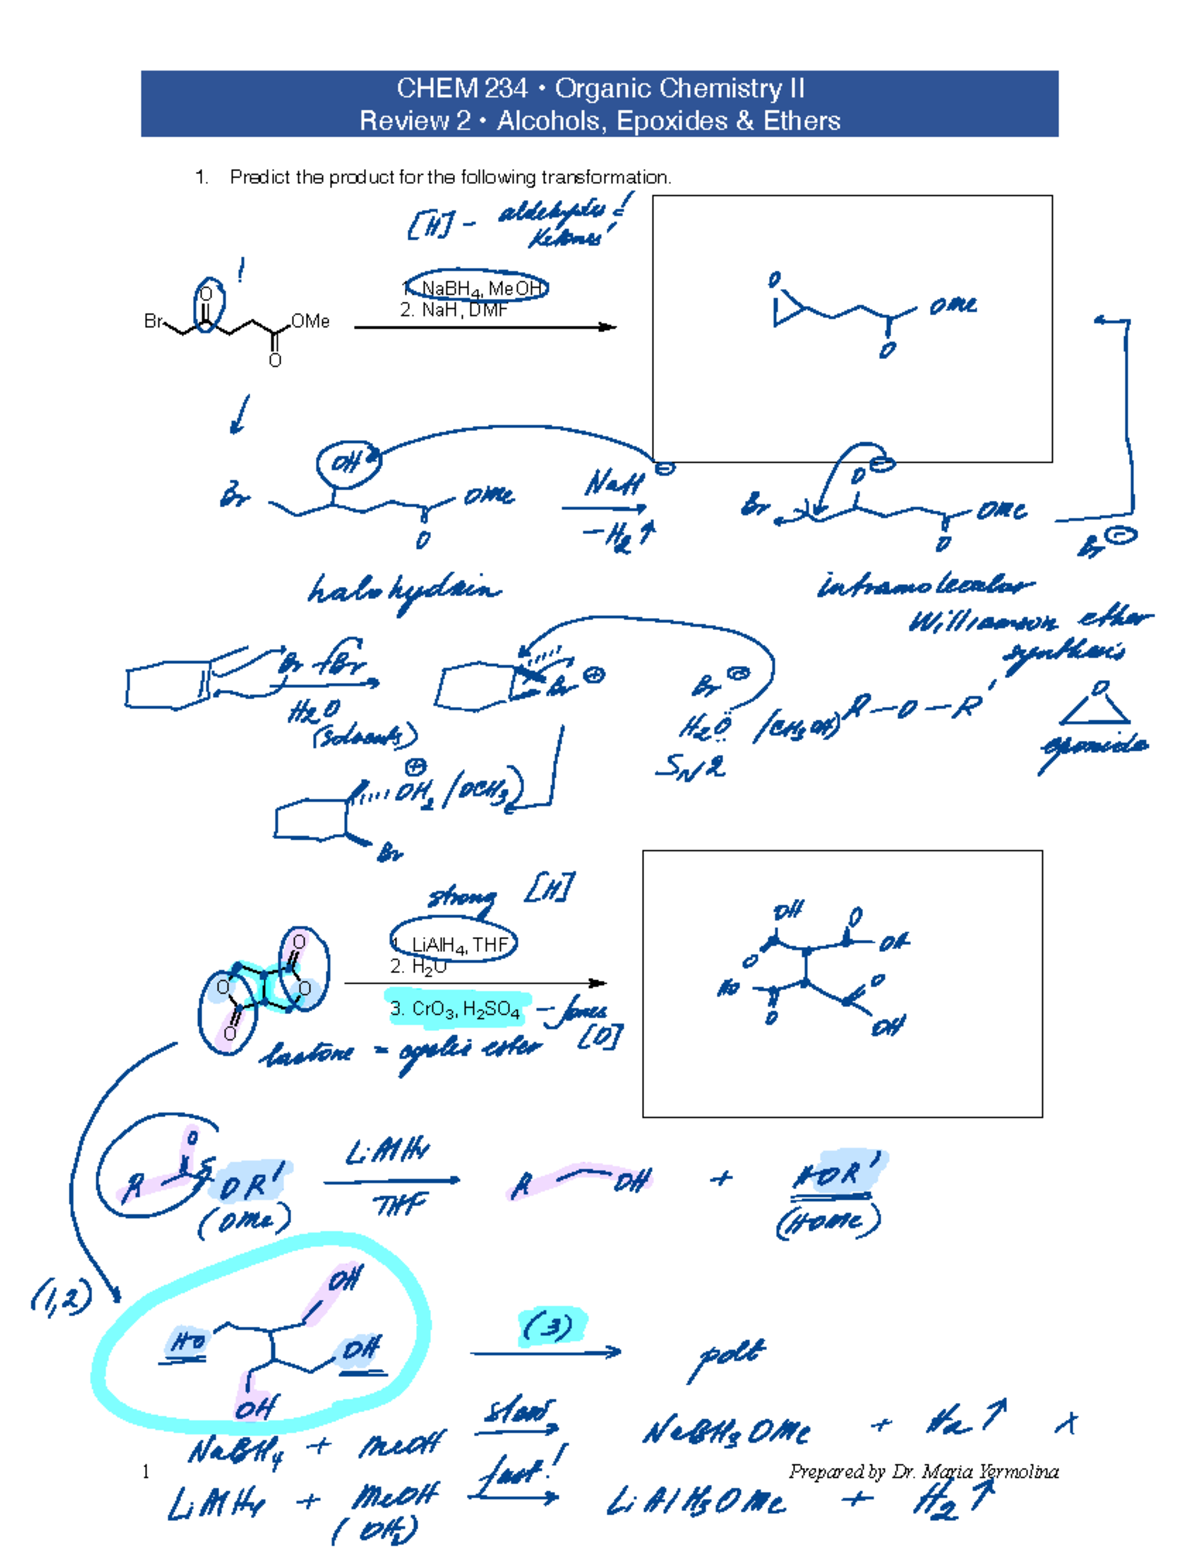 CHEM 234 • Organic Chemistry II
Review 2 • Alcohols, Epoxides & Ethers
1. Predict the product for the following transformation.
[H] - aldehydes !
Ketones !
!
O
Br
OMe
O
1. NaBH4, MeOH
2. NaH, DMF
O
OMe
O
OH
Br
OMe
O
NaH
- H2 ↑
⊖
O ⊖
Br
OMe
O
Br ⊖
halohydrin
intramolecular
Williamson ether
synthesis
Br Br
H2O
(solvents)
Br ⊕
Br ⊖
H2O / (CH3OH)
SN2
R-O-R'
O
epoxide
⊕
OH2 / (OCH3)
Br
strong [H]
O
O
O
O
1. LiAlH4, THF
2. H2O
3. CrO3, H2SO4 - Jones
[O]
lactone = cyclic ester
OH
O
OH
O
HO
O
O
OH
R
O
OR'
(OMe)
LiAlH4
THF
R
OH
+
HOR'
(HOMe)
(1,2)
OH
HO
OH
OH
(3)
NaBH4 + MeOH
slow
NaBH3OMe + H2 ↑ x
1
Prepared by Dr. Maria Yermolina
LiAlH4 + MeOH
(OH2)
fast!
LiAlH3OMe + H2 ↑